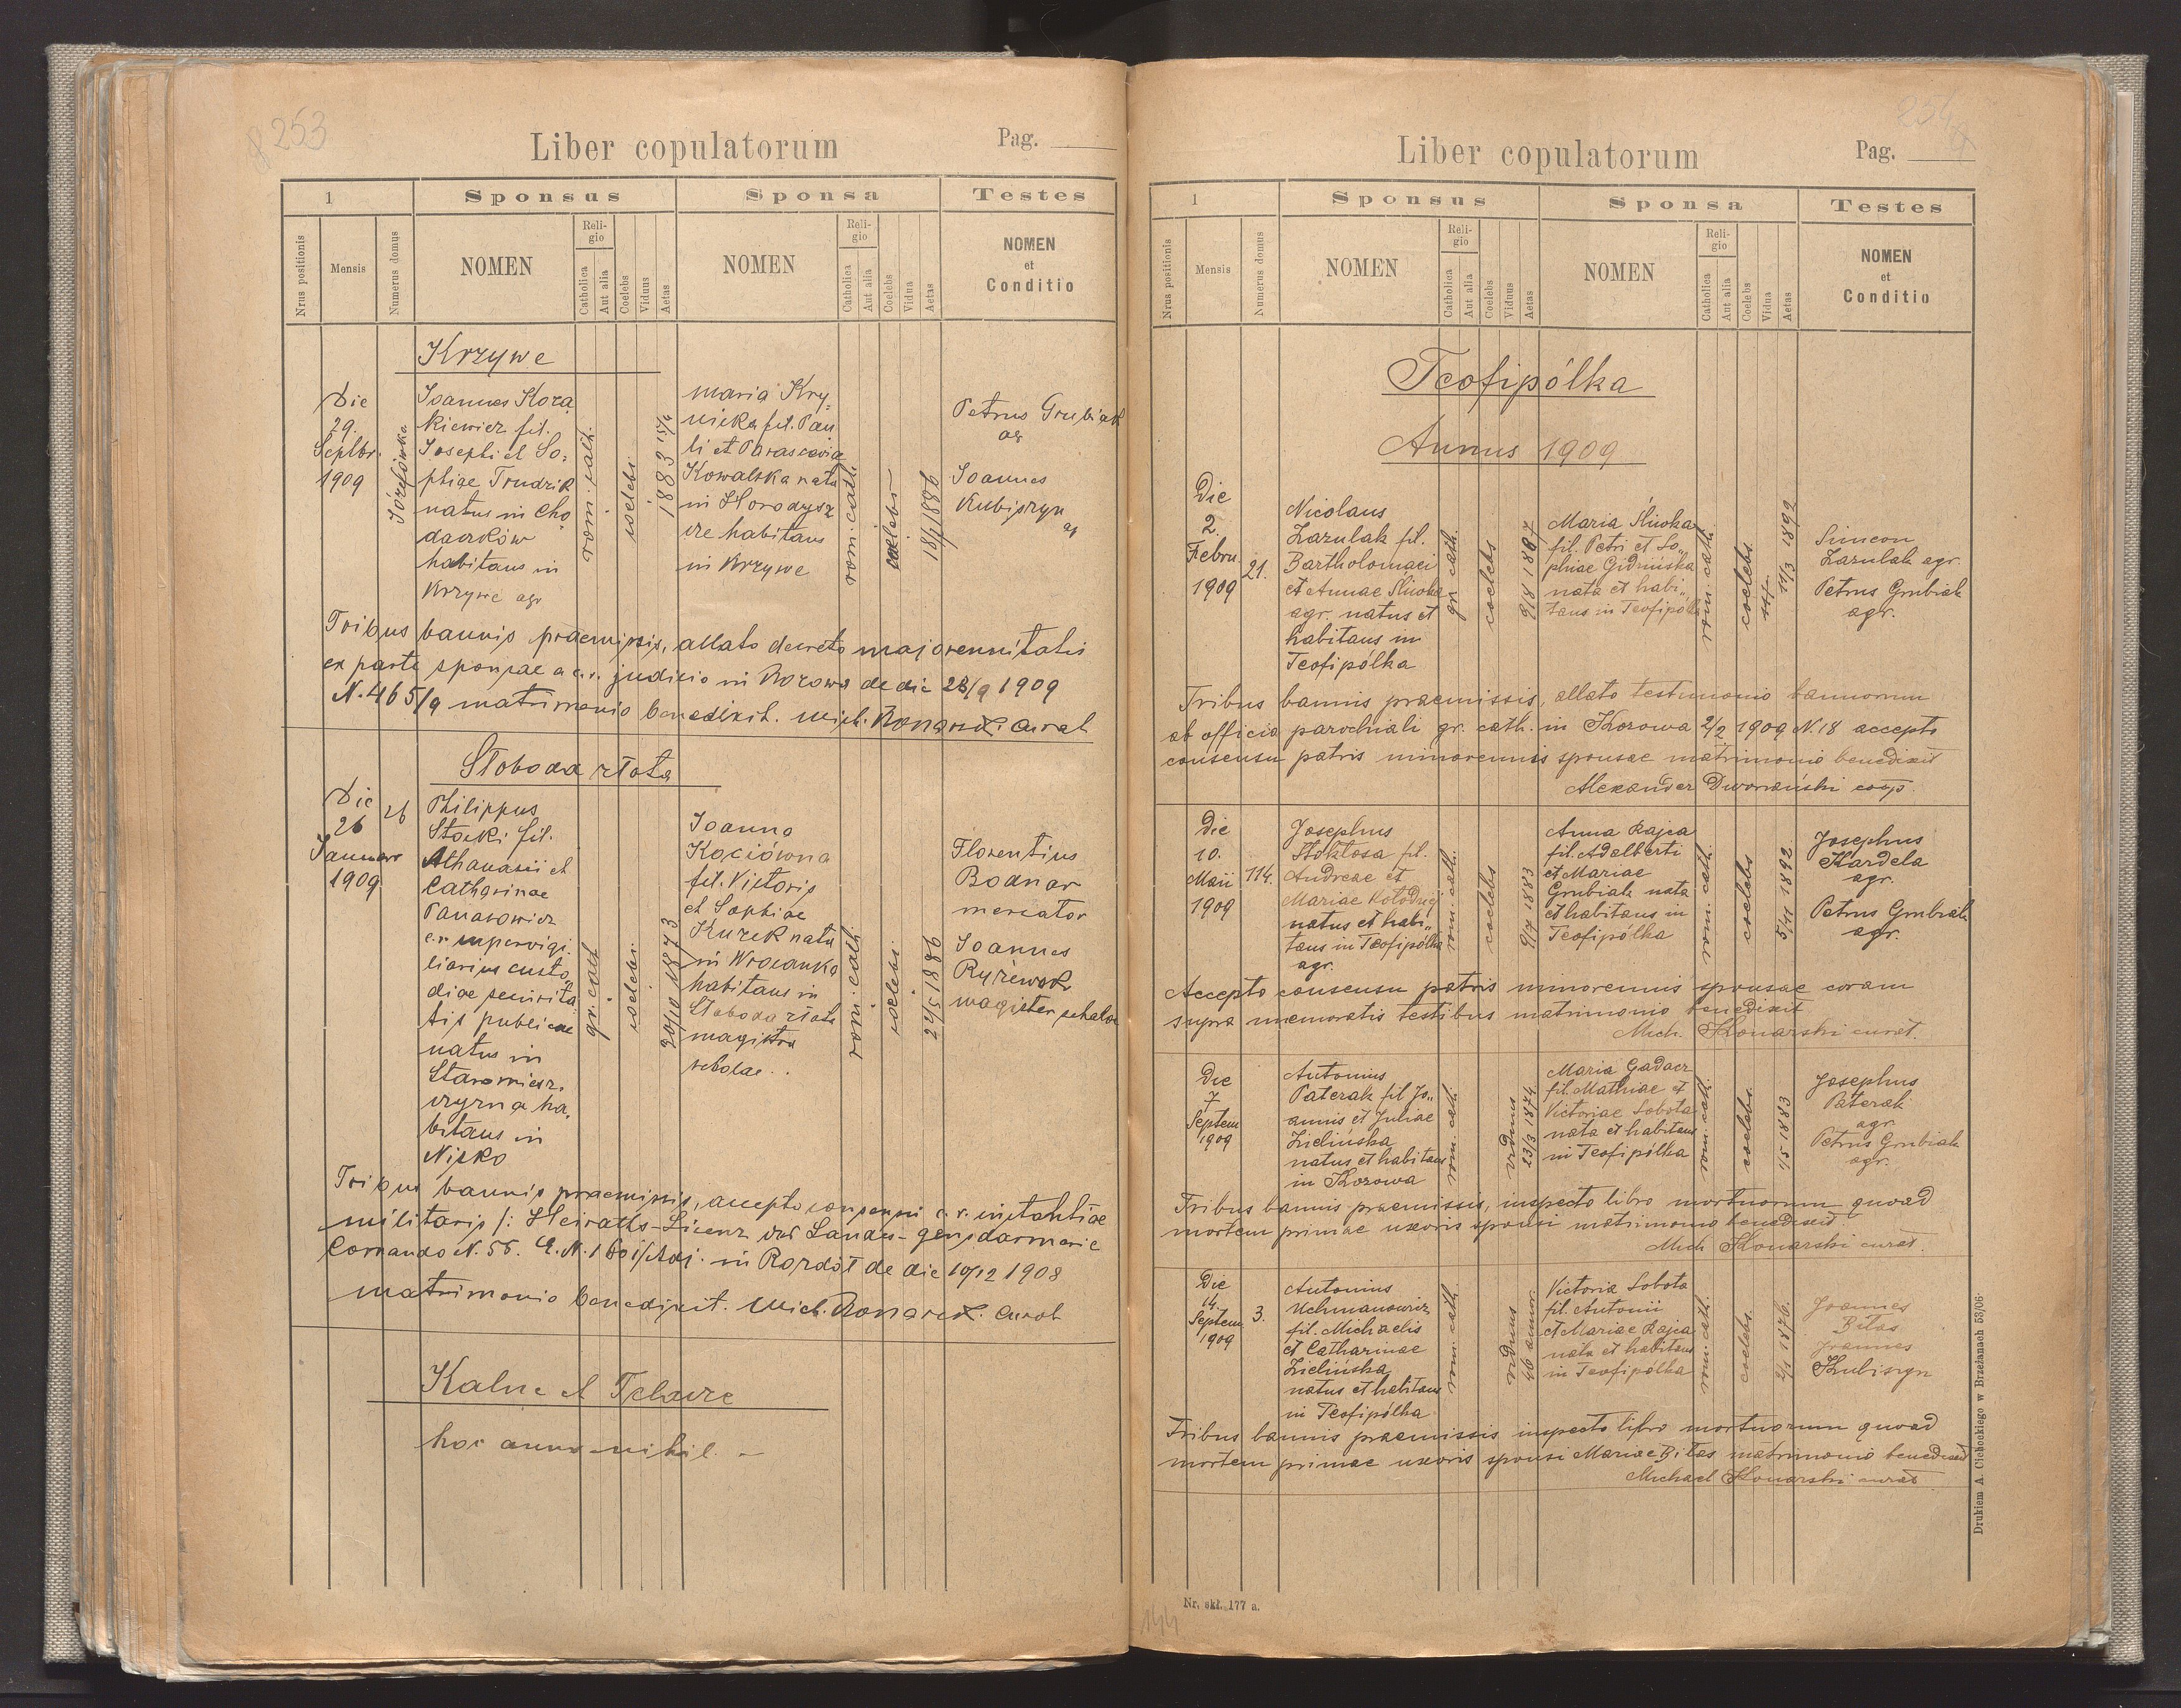 253
Liber copulatorum
Pag.
1
Sponsus
Sponsa
Testes
Nrus positionis
Mensis
Numerus domus
NOMEN
Reli-
gio
Catholica
Aut alia
Coelebs
Viduus
Aetas
NOMEN
Reli-
gio
Catholica
Aut alia
Coelebs
Vidua
Aetas
NOMEN
et
Conditio
Krzywe
Die
29.
Septbr.
1909
Józefówka
Joannes Kora
kiewicz fil.
Josephi et So-
phiae Trudzik
natus in Cho
daczków
habitans in
Krzywe agr
rom. cath.
coelebs
1883 15/4
Maria Kry-
nicka fil. Pau
li et Parascevia
Kowalska nata
in Horodysz
cze habitans
in Krzywe
rom. cath.
coelebs
18/1 1886
Petrus Grubiak
agr
Joannes
Kubiszyn
agr
Tribus bannis praemissis, allato decreto majorennitatis
ex parte sponsae a c.r. judicio in Kozowa de die 28/9 1909
N. 465/9 matrimonio benedixit. Mich. Konarski Curat
Słoboda złota
Die
26
Januar
1909
26
Philippus
Stocki fil.
Athanasii et
Catharinae
Panasowicz
c.r. supervigi
liarius custo
diae securita
tis publicae
natus in
Staromiesz-
czyzna ha-
bitans in
Nisko
gr. cath
coelebs
20/10 1873
Joanna
Kociówna
fil. Victoris
et Sophiae
Kurek nata
in Wrocanka
habitans in
Słoboda złota
magistra
scholae
rom. cath
coelebs
24/5 1886
Florentius
Bodnar
mercator
Joannes
Ryżewski
magister scholae
Tribus bannis praemissis, accepto consensu c.r. instantiae
militaris /: Heiraths-Licenz des Landes-gensdarmerie
Comando N. 55. E.N. 1601/Adj. in Rozdół de die 10/12 1908
matrimonio benedixit. Mich. Konarski. Curat
Kalne et Telacze
hoc anno nihil. –
254
9
Liber copulatorum
Pag.
1
Sponsus
Sponsa
Testes
Nrus positionis
Mensis
Numerus domus
NOMEN
Reli-
gio
Catholica
Aut alia
Coelebs
Viduus
Aetas
NOMEN
Reli-
gio
Catholica
Aut alia
Coelebs
Vidua
Aetas
NOMEN
et
Conditio
Teofipólka
Annus 1909
Die
2
Febru.
1909
21.
Nicolaus
Zazulak fil.
Bartholomaei
et Annae Śliwka
agr. natus et
habitans in
Teofipólka
gr. cath.
coelebs
9/8 1887
Maria Śliwka
fil. Petri et So„
phiae Gidzińska
nata et habi„
tans in Teofipólka
rom. cath.
coelebs.
11/3 1892
Simeon
Zazulak agr.
Petrus Grubiak
agr.
Tribus bannis praemissis, allato testimonio bannorum
ab officio parochiali gr. cath. in Kozowa 2/2 1909 N. 18 accepto
consensu patris minorennis sponsae matrimonio benedixit
Alexander Dworzański coop.
Die
10.
Maii
1909
114.
Josephus
Stokłosa fil.
Andreae et
Mariae Kołodziej
natus et habi„
tans in Teofipólka
agr.
rom. cath.
coelebs
9/7 1883
Anna Rajca
fil. Adelberti
et Mariae
Grubiak nata
et habitans in
Teofipólka
rom. cath.
coelebs
5/11 1892
Josephus
Kardela
agr.
Petrus Grubiak
agr.
Accepto consensu patris minorennis sponsae coram
supra memoratis testibus matrimonio benedixit
Mich. Konarski curat.
Die
7
Septem
1909
Antonius
Paterak fil Jo„
annis et Juliae
Zielińska
natus et habitans
in Kozowa
rom. cath.
viduus
23/3 1874
Maria Gadacz
fil. Mathiae et
Victoriae Sobota
nata et habitans
in Teofipólka
rom. cath.
coelebs.
1/5 1883
Josephus
Paterak
agr.
Petrus Grubiak
agr.
Tribus bannis praemissis, inspecto libro mortuorum quoad
mortem primae uxoris sponsi matrimonio benedixit.
Mich Konarski curat.
Die
14.
Septem
1909
3.
Antonius
Uchmanowicz
fil. Michaelis
et Catharinae
Zielińska
natus et habitans
in Teofipólka
rom. cath.
viduus
46 annor.
Victoria Sobota
fil. Antonii
et Mariae Rajca
nata et habitans
in Teofipólka
rom. cath.
coelebs.
2/1 1876.
Joannes
Bilas
Joannes
Kubiszyn
Tribus bannis praemissis inspecto libro mortuorum quoad
mortem primae uxoris sponsi Mariae Bilas matrimonio benedixit
Michael Konarski curat
Drukiem A. Cichockiego w Brzeżanach 553/06
Nr. skł. 177 a.
144